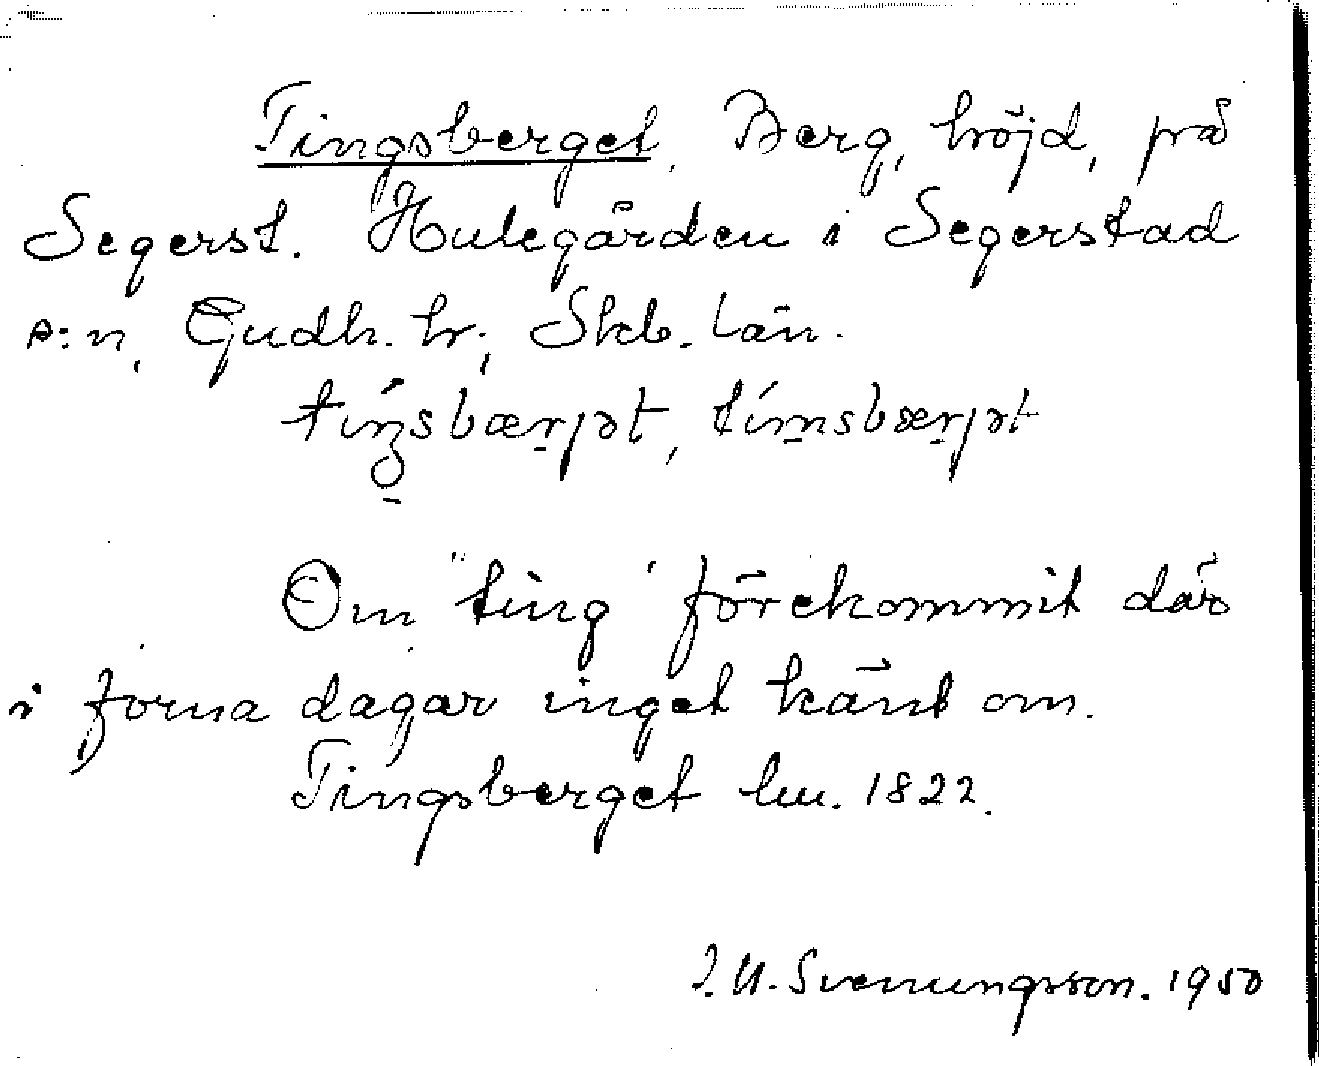 Tingsberget. Berg, höjd, på
Segerst. Hulegården i Segerstad
s:n, Gudh. hr; Skb. län.
Om "ting" förekommit där
i forna dagar inget känt om.
Tingsberget lm. 1822.
J. U. Svenungsson. 1950